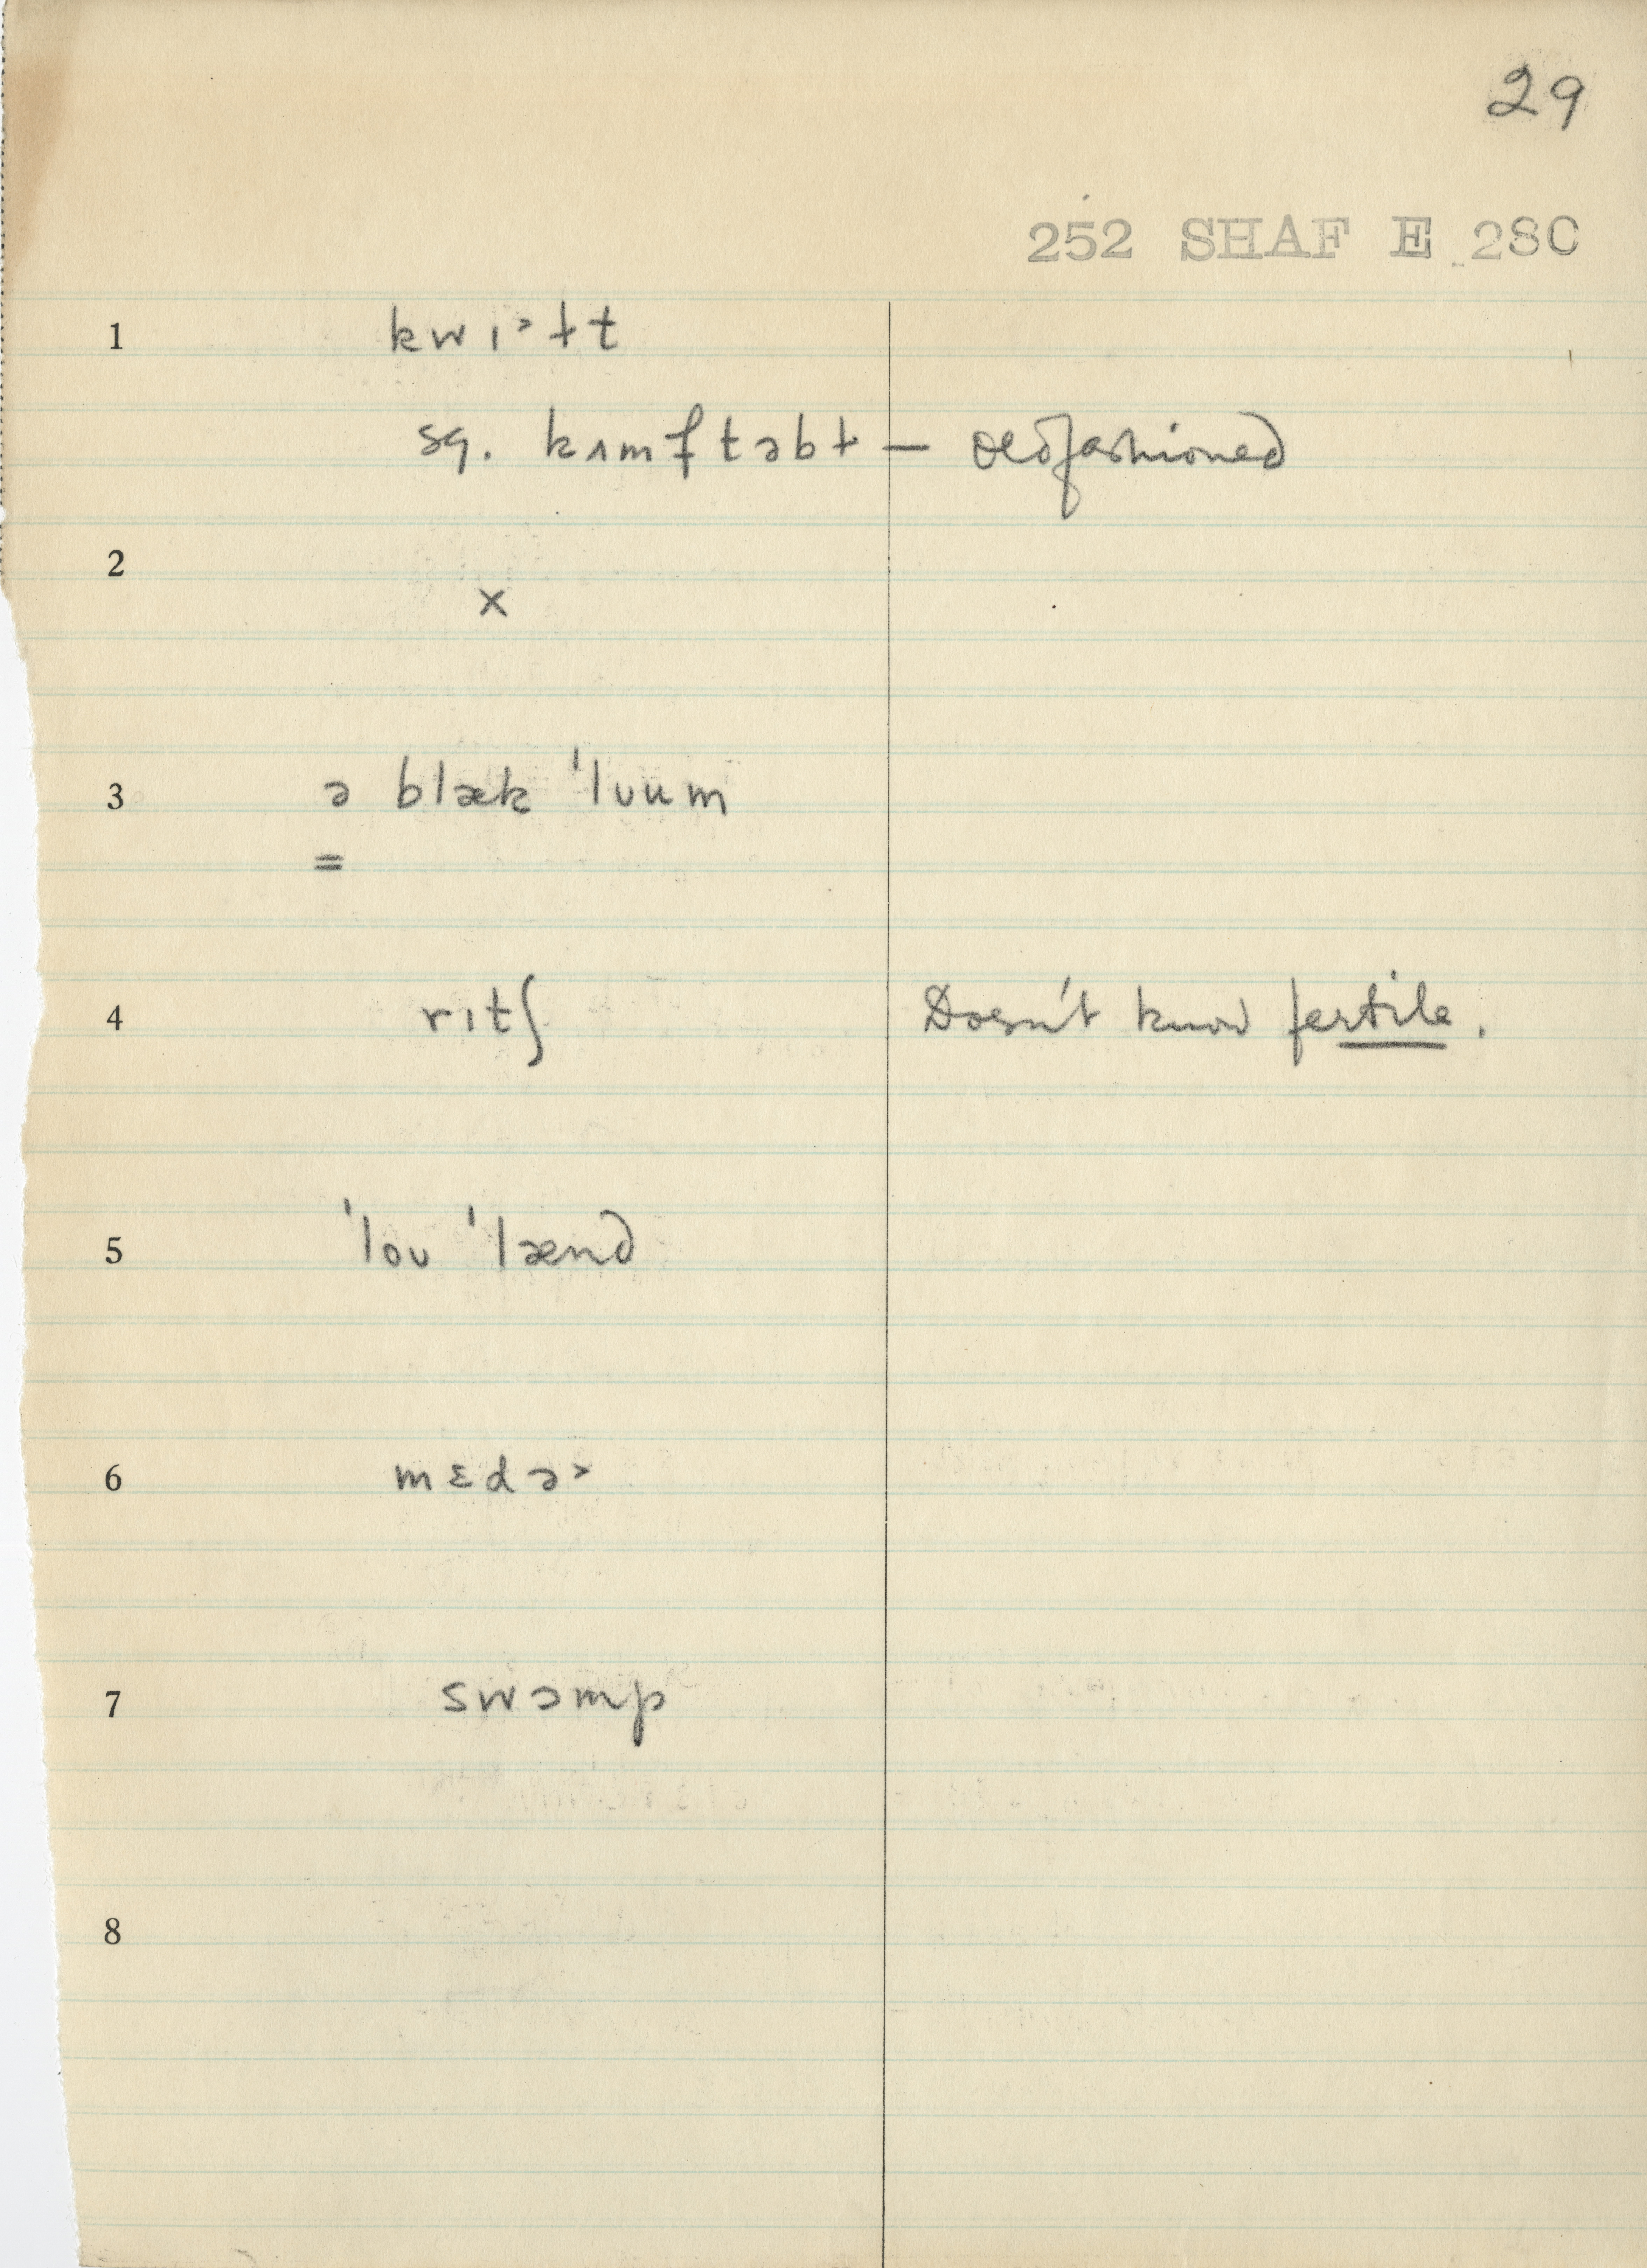 29
252 SHAF E 28C
1 kwɪ˃ɫt
sq. kʌmftəbɫ — oldfashioned
2 ×
3 ə blæk ˈlʊum
=
4 rɪtʃ Doesn't know fertile.
5 ˈloʊ ˈlænd
6 mɛdə˃
7 swɔmp
8